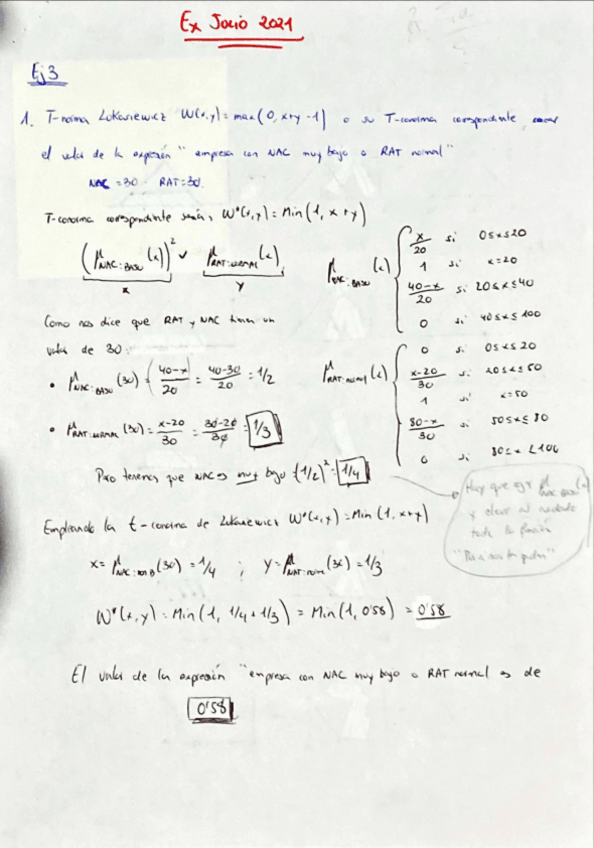 Ex Junio 2021
Ej 3
1. T-norma Lukasiewicz W(x,y) = max(0, x+y-1) o su T-conorma correspondiente,
el valor de la expresión "empresa con NAC muy bajo o RAT normal"
NAC = 30 RAT = 30.
T-conorma correspondiente sería: W*(x,y) = Min(1, x+y)
(μ NAC:BAJO (x))² ∨ μ RAT:NORMAL (x)
x y
μ NAC:BAJO (x) { x/20 si 0≤x≤20
1 si x=20
40-x/20 si 20≤x≤40
0 si 40≤x≤100
Como nos dice que RAT y NAC tienen un
valor de 30:
• μ NAC:BAJO (30) = (40-x/20) = 40-30/20 = 1/2
μ RAT:normal (x) { 0 si 0≤x≤20
x-20/30 si 20≤x≤50
1 si x=50
80-x/30 si 50≤x≤80
0 si 80≤x≤100
• μ RAT:NORMAL (30) = x-20/30 = 30-20/30 = 1/3
Pero tenemos que NAC es muy bajo (1/2)² = 1/4
Hay que coger μ NAC:BAJO (x)
y elevar al cuadrado
toda la función
Empleando la t-conorma de Lukasiewicz W*(x,y) = Min(1, x+y)
(30) = 1/4 ; (30) = 1/3
W*(x,y) = Min(1, 1/4 + 1/3) = Min(1, 0'58) = 0'58
El valor de la expresión "empresa con NAC muy bajo o RAT normal es de
0'58